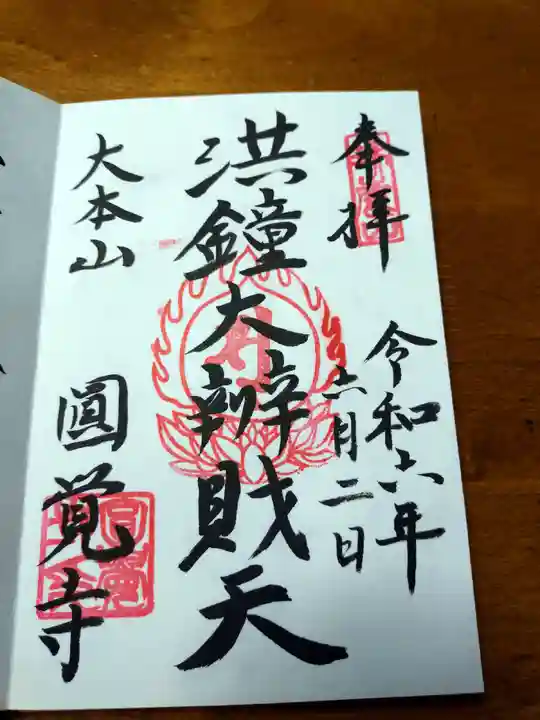 奉拝
令和六年
六月二日
洪鐘大辨財天
大本山
圓覺寺